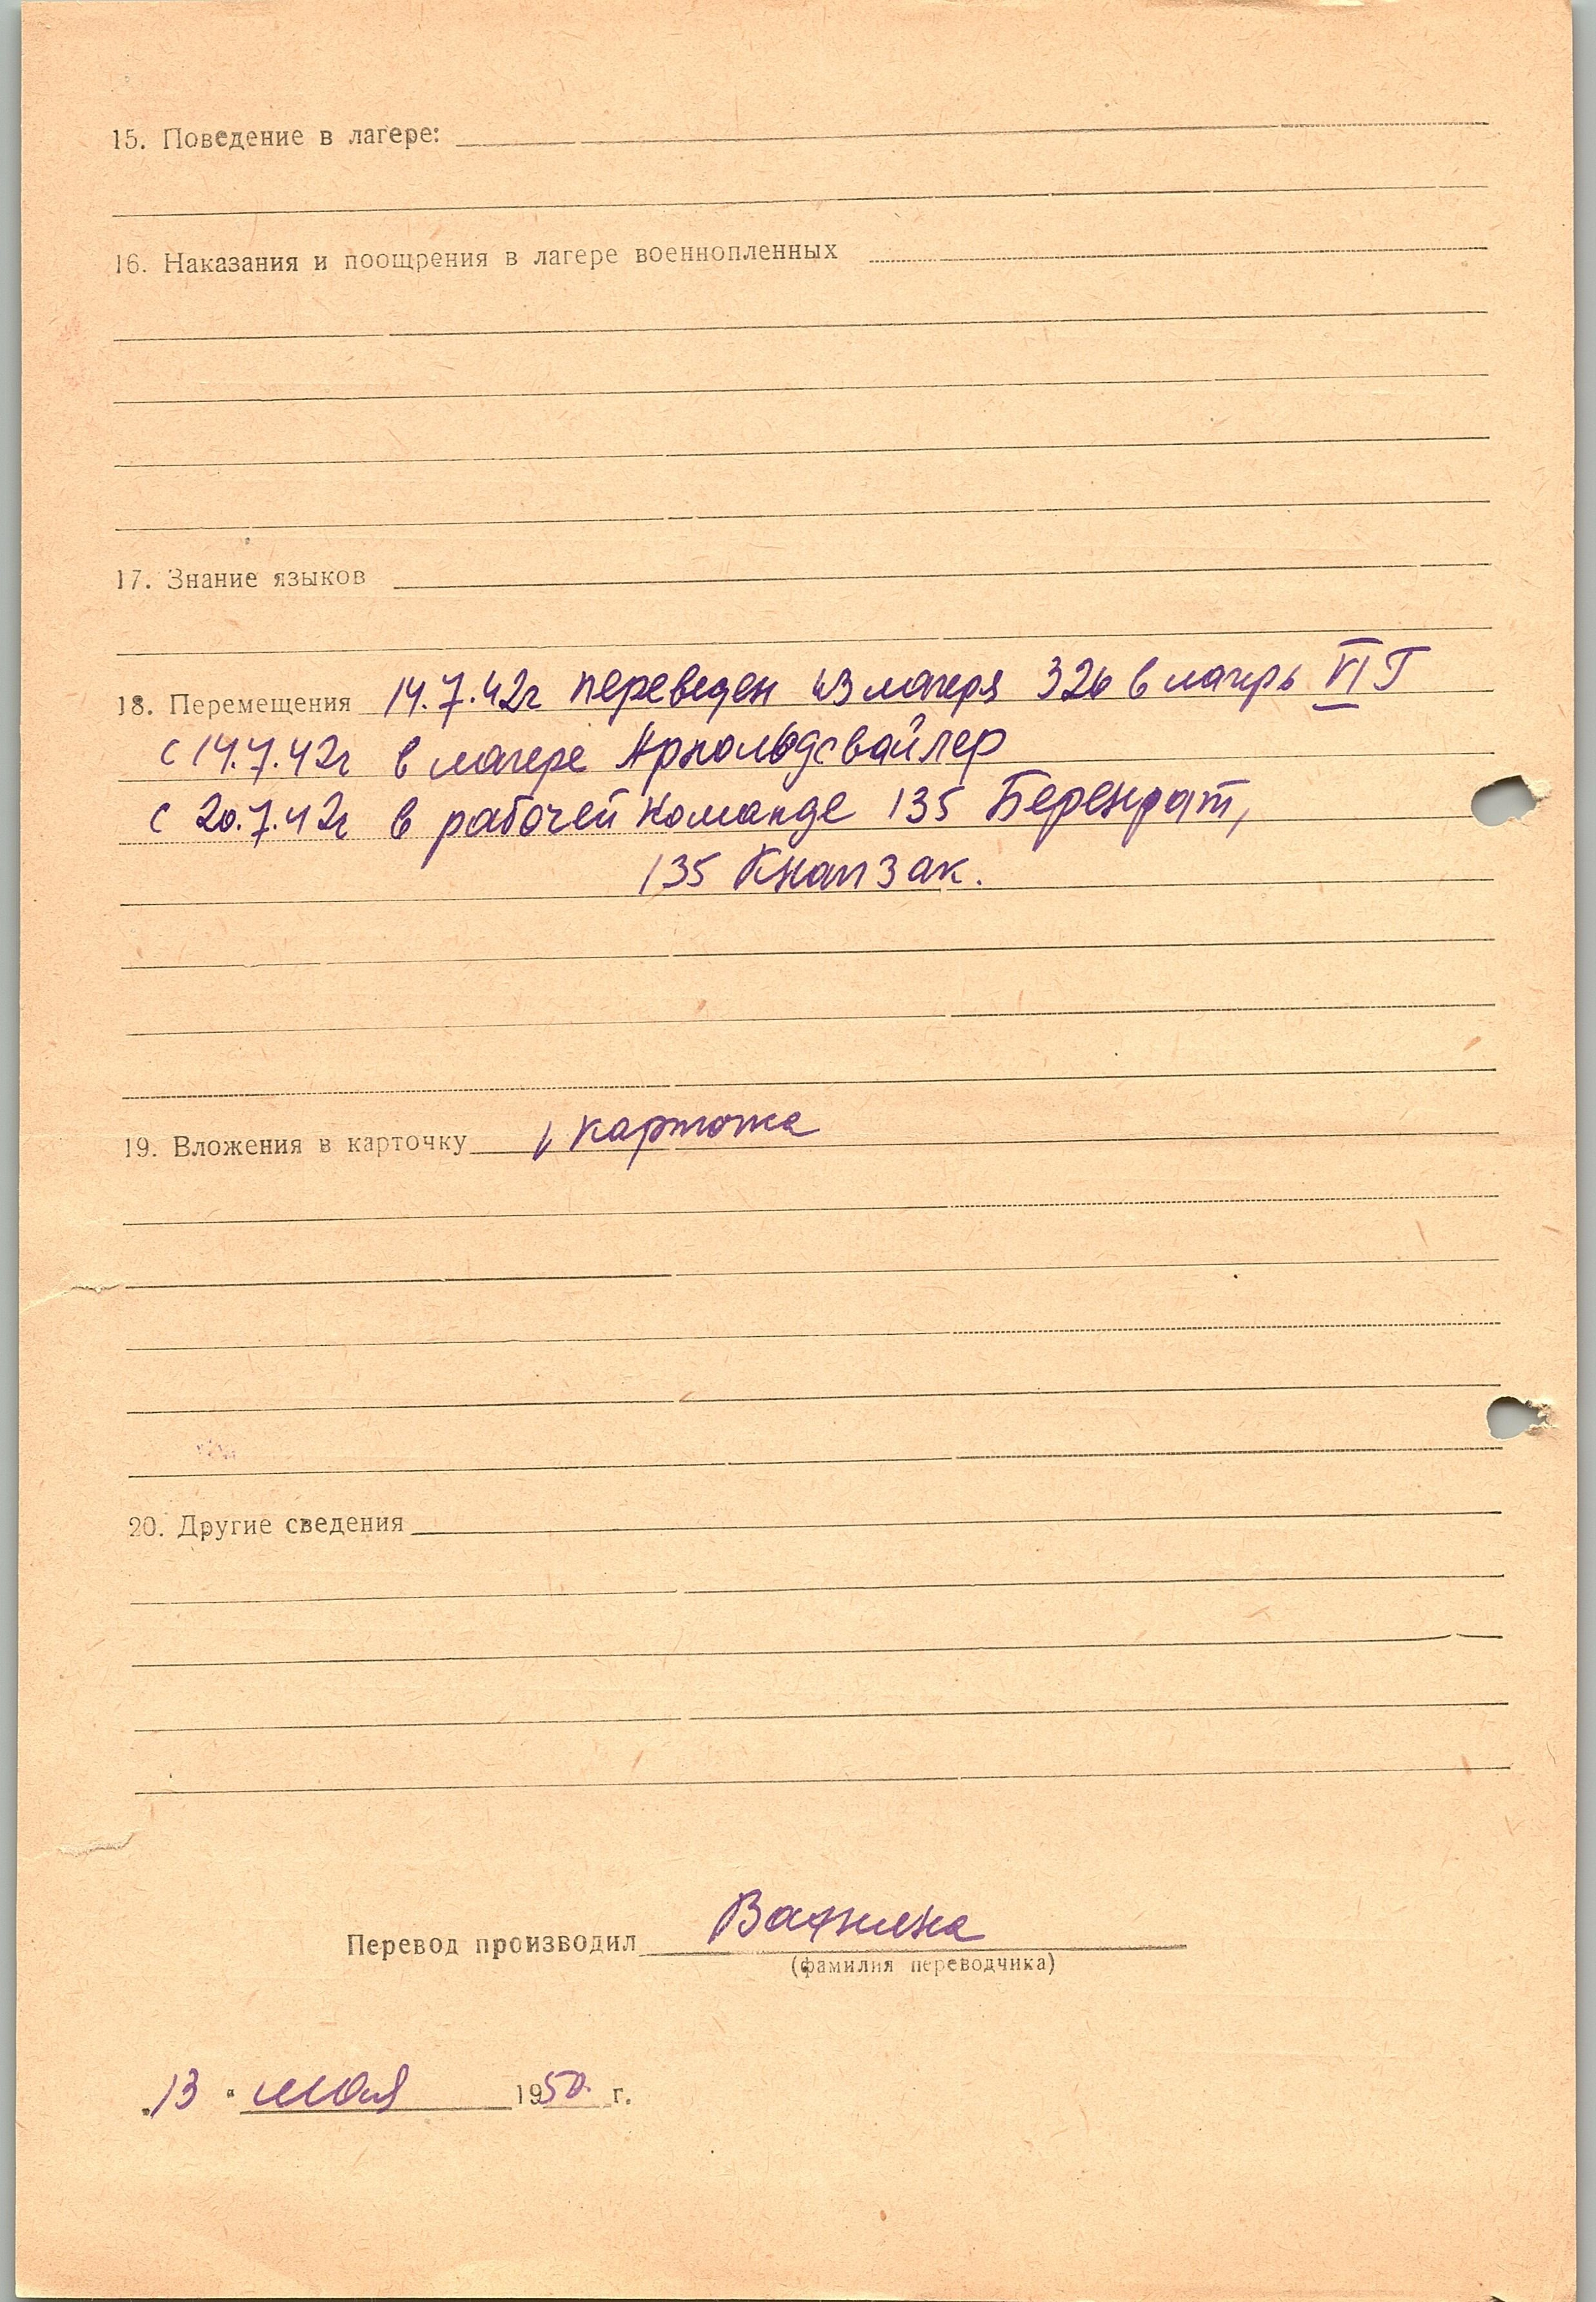 15. Поведение в лагере:
16. Наказания и поощрения в лагере военнопленных
17. Знание языков
18. Перемещения 14.7.42г переведен из лагеря 326 в лагерь VI Г
с 14.7.42г в лагере Арнольдсвайлер
с 20.7.42г в рабочей команде 135 Берендат,
135 Кнапзак.
19. Вложения в карточку 1 карточка
20. Другие сведения
Перевод производил
(фамилия переводчика)
„13 “ мая 1950 г.